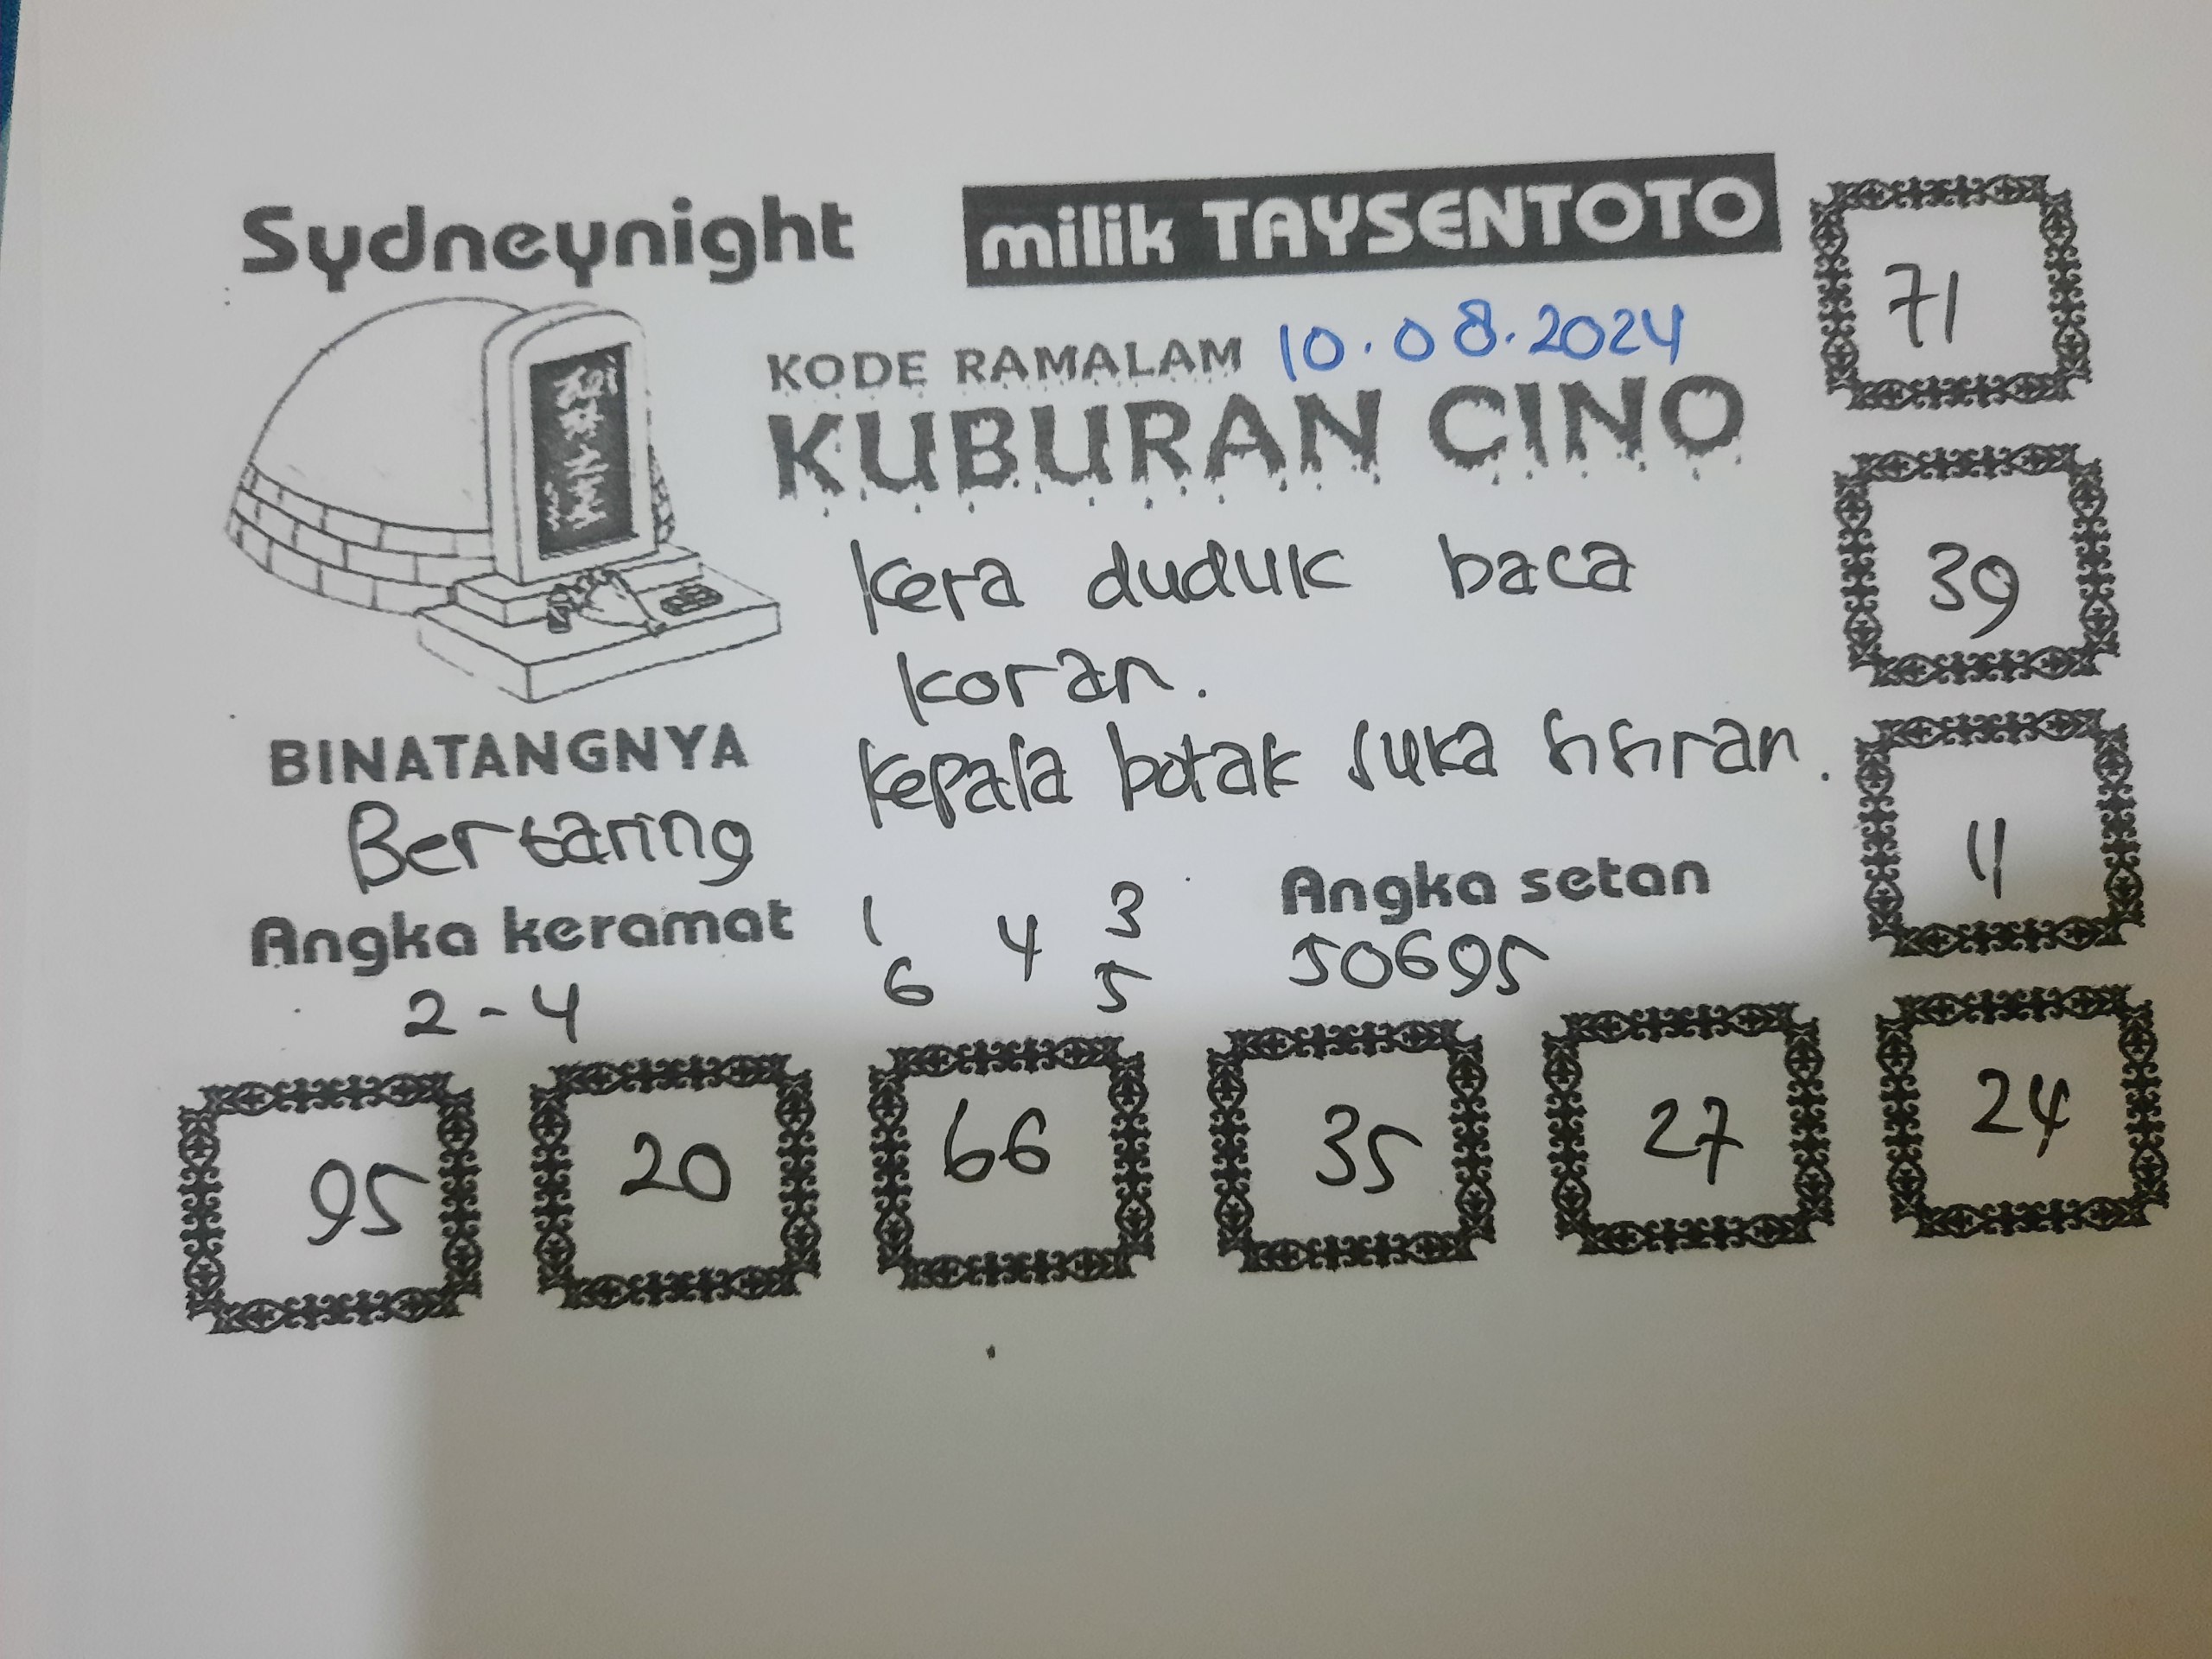 Sydneynight
milik TAYSENTOTO
71
KODE RAMALAM 10.08.2024
KUBURAN CINO
kera duduk baca
koran.
39
BINATANGNYA
Bertaring
kepala botak suka sisiran.
11
Angka keramat
2-4
1 4 3
6 5
Angka setan
50695
95 20 66 35 27 24